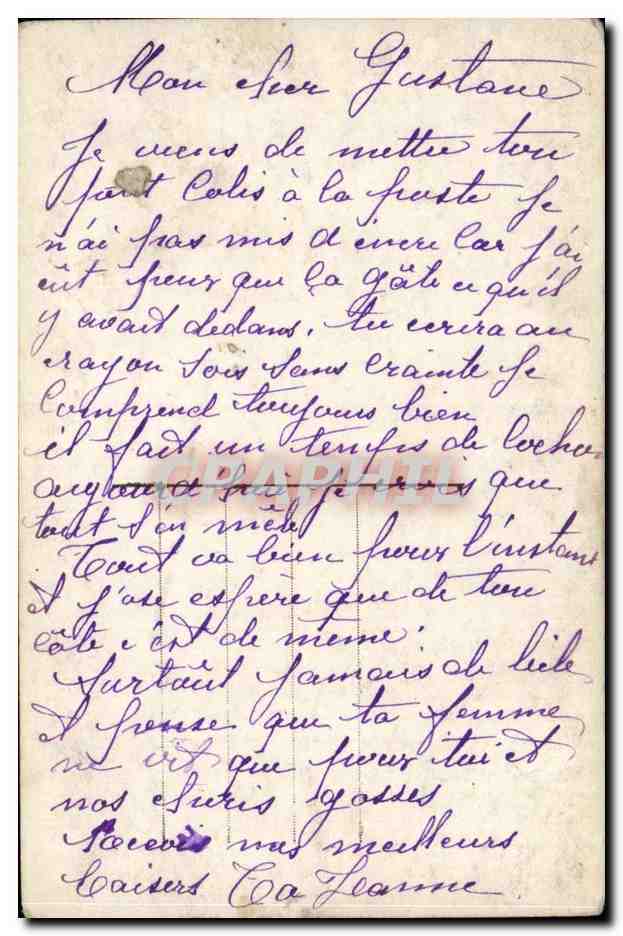 Mon cher Gustave
Je viens de mettre ton
petit Colis à la poste Je
n'ai pas mis d'encre Car j'ai
eût peur que ça gâte ce qu'il
y avait dedans. tu ecrira au
crayon sois sans crainte Je
Comprend toujours bien
il fait un temps de Cochon
aujourd'hui je crois que
tout s'en mêle
Tout va bien pour l'instant
et j'ose espère que de ton
côte c'est de même.
Surtoût jamais de bile
et pense que ta femme
ne vit que pour toi et
nos cheris gosses
Recevois nos meilleurs
baisers Ta Jeanne
CPAPHIL